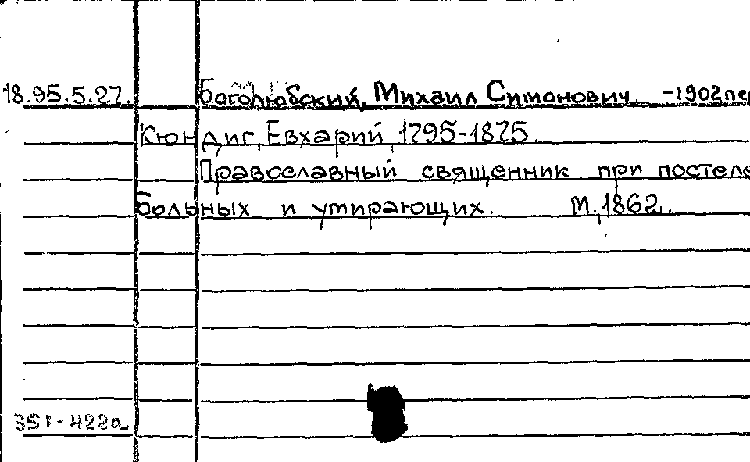 18.95.5.27. Боголюбский, Михаил Симонович -1902 пер
Кюндиг, Евхарий, 1795-1875.
Православный священник при постеле
больных и умирающих. М., 1862.
351-422а